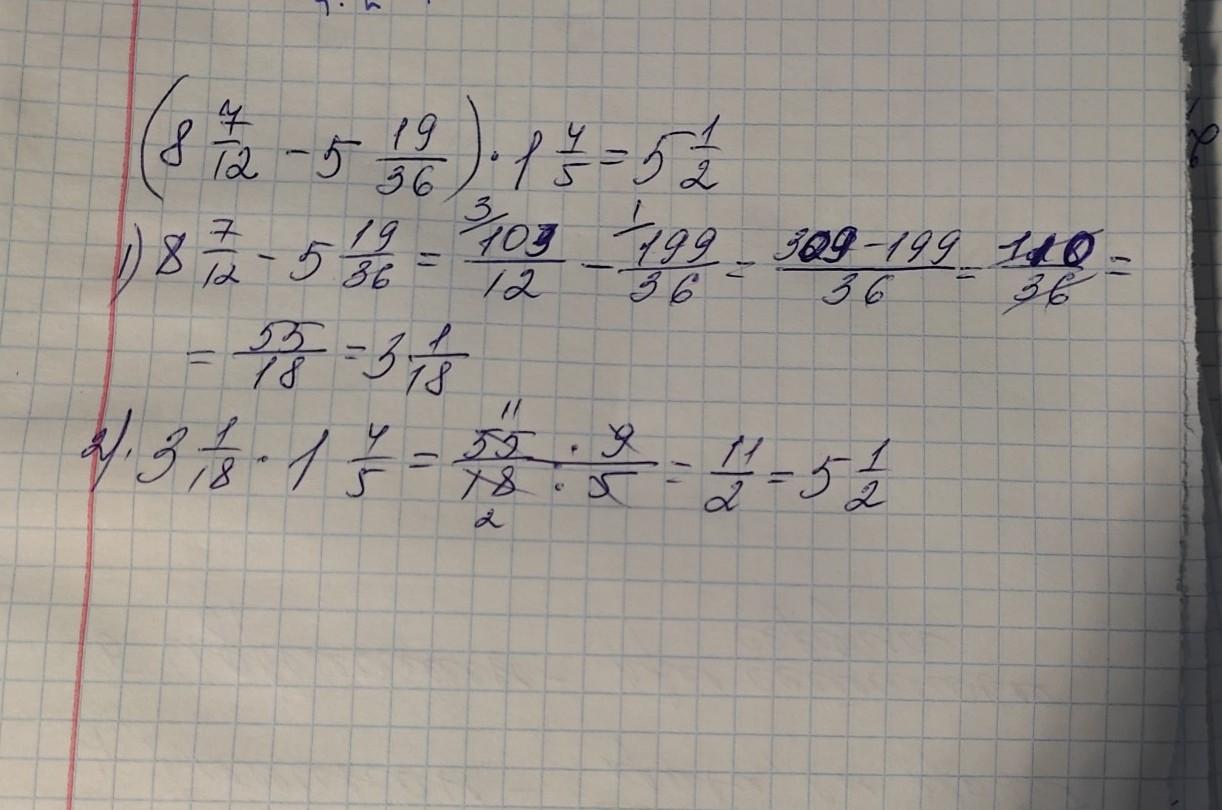 (8 7/12 - 5 19/36) · 1 4/5 = 5 1/2
1) 8 7/12 - 5 19/36 = 3/ 103/12 - 1/ 199/36 = 309-199/36 = 110/36 =
= 55/18 = 3 1/18
2) · 3 1/18 · 1 4/5 = 55 11 · 9 / 18 2 · 5 = 11/2 = 5 1/2